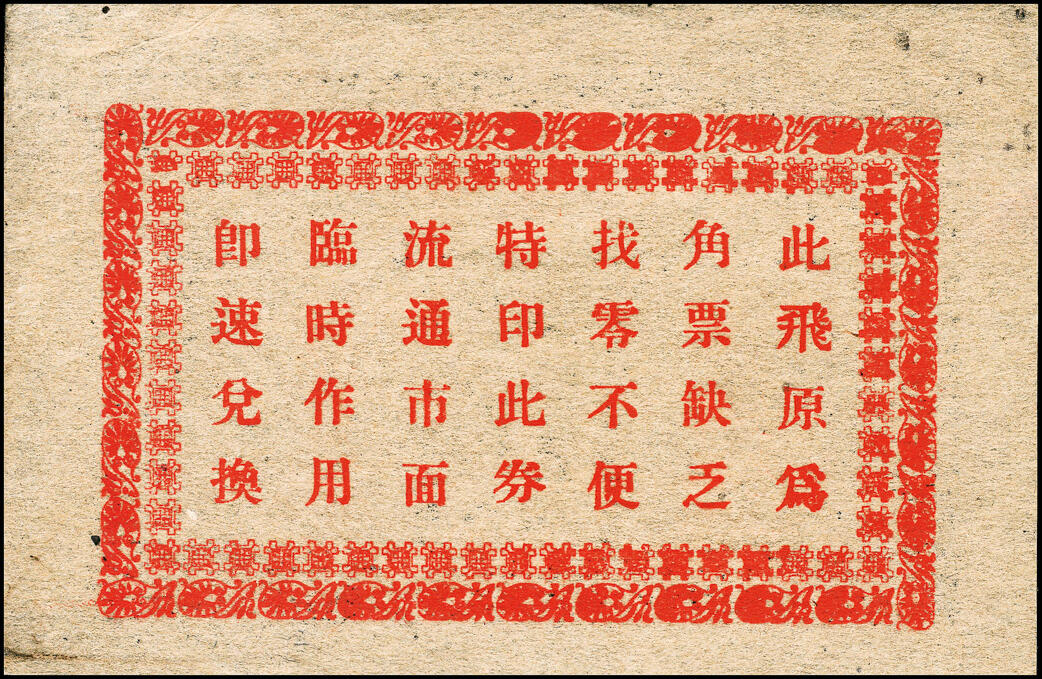 此飛原爲
角票缺乏
找零不便
特印此券
流通市面
臨時作用
卽速兌換